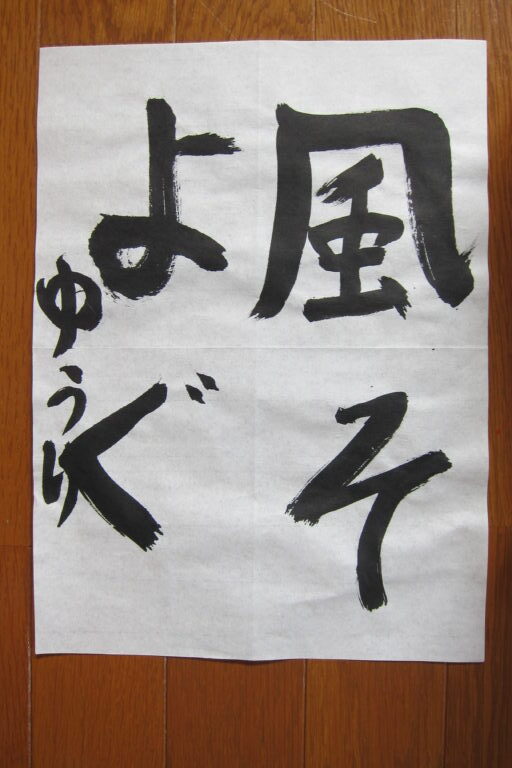 風そ
よぐ
ゆうり